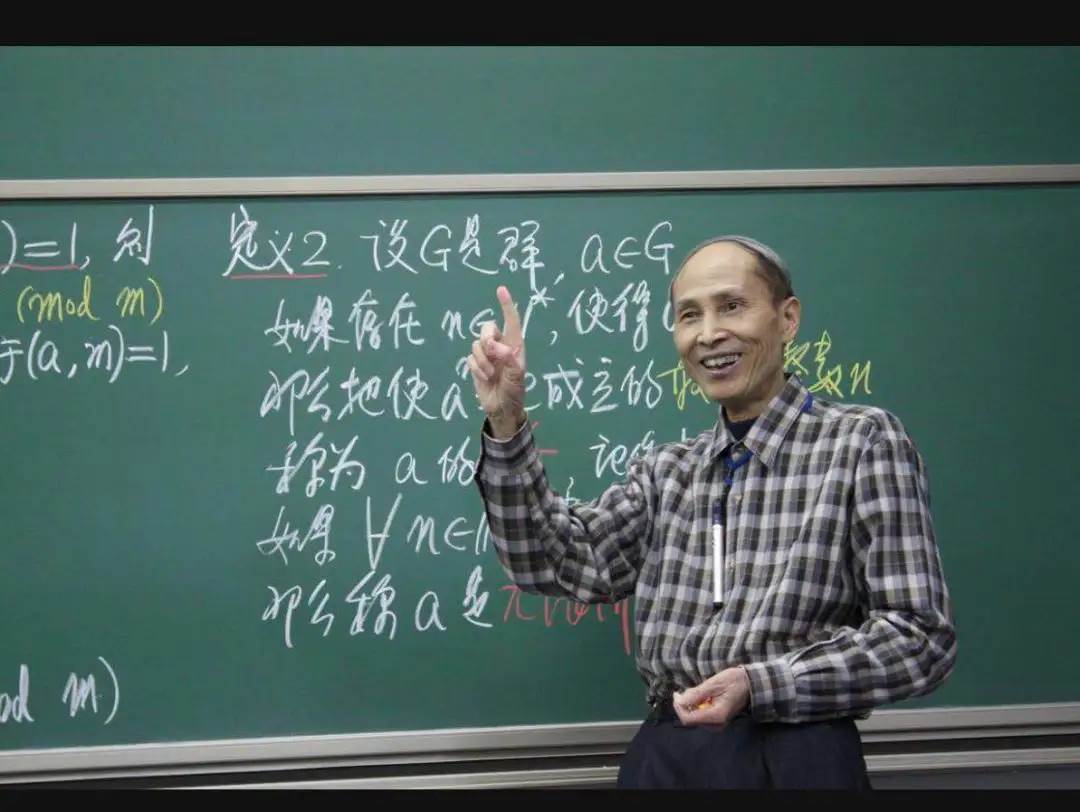 )=1, 则
(mod m)
于(a, m)=1,
od m)
定义2. 设G是群, a∈G
如果存在 n∈N*, 使得
那么把使 a 成立的 整数n
称为 a 的 记作
如果 ∀ n∈N
那么称 a 是